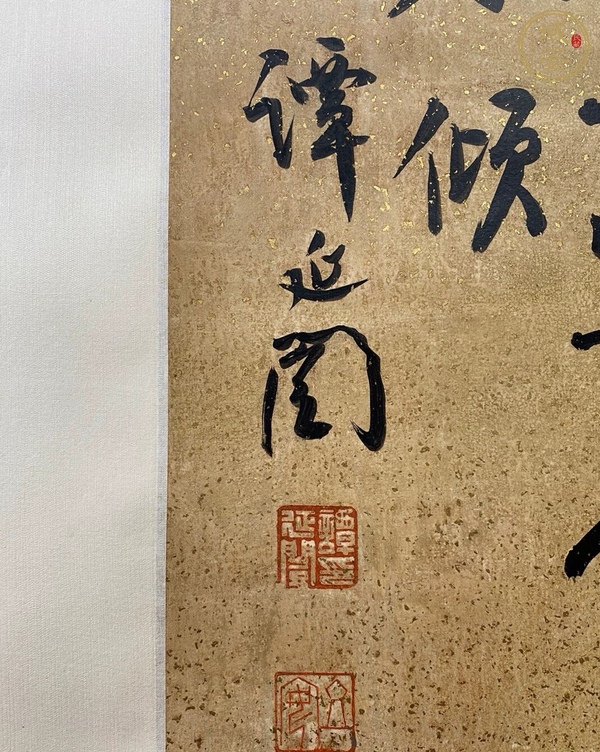 傾
譚延闓
譚延闓印